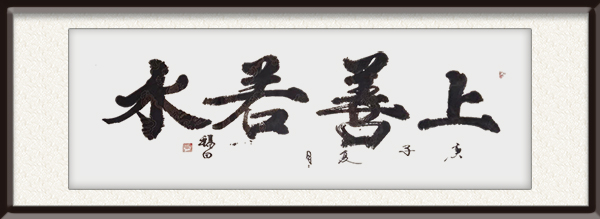 上善若水
庚子夏月